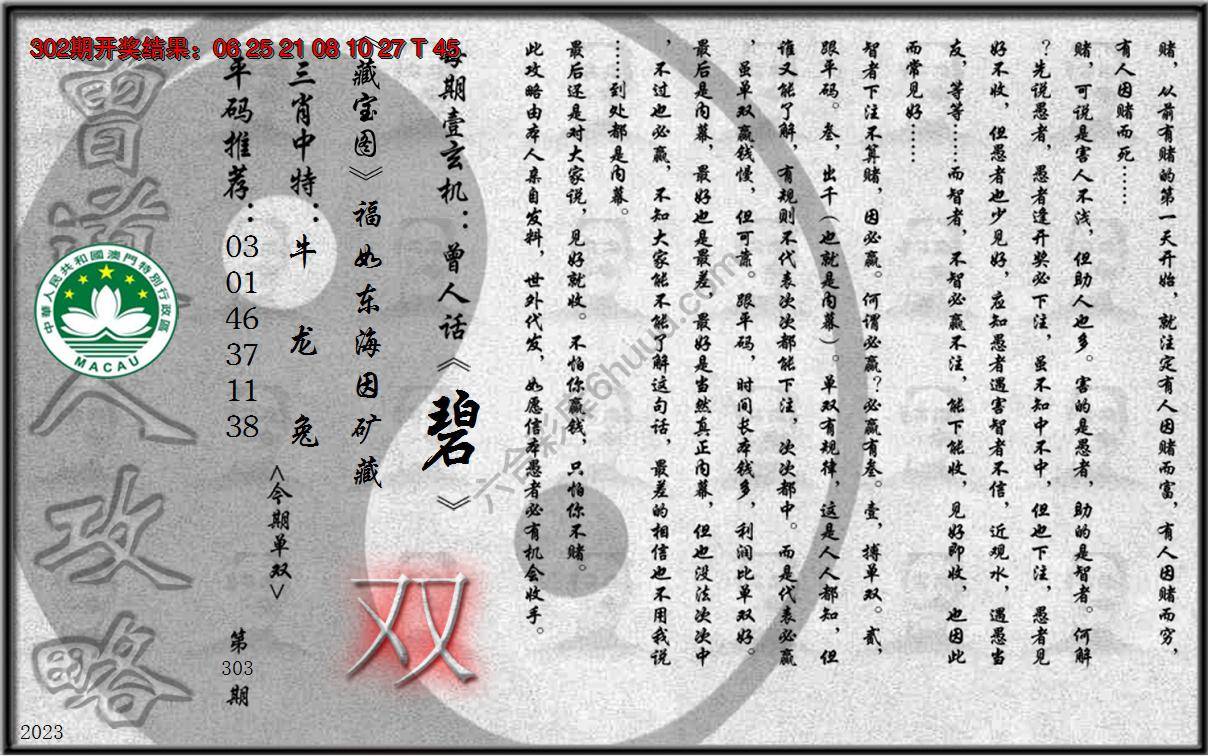 302期开奖结果：06 25 21 08 10 27 T 45
赌，从前有赌的第一天开始，就注定有人因赌而富，有人因赌而穷，
有人因赌而死……
赌，可说是害人不浅，但助人也多。害的是愚者，助的是智者。何解
？先说愚者，愚者逢开奖必下注，虽不知中不中，但也下注，愚者见
好不收，但愚者也少见好，应知愚者遇害智者不信，近观水，遇愚当
友，等等……而智者，不智必赢不注，能下能收，见好即收，也因此
而常见好……
智者下注不算赌，因必赢。何谓必赢？必赢有叁。壹，搏单双。贰，
跟平码。叁，出千（也就是内幕）。单双有规律，这是人人都知，但
谁又能了解，有规则不代表次次都能下注，次次都中。而是代表必赢
，虽单双赢钱慢，但可靠。跟平码，时间长本钱多，利润比单双好。
最后是内幕，最好也是最差，最好是当然真正内幕，但也没法次次中
，不过也必赢，不知大家能不能了解这句话，最差的相信也不用我说
……到处都是内幕。
最后还是对大家说，见好就收。不怕你赢钱，只怕你不赌。
此攻略由本人亲自发料，世外代发，如愿信本愚者必有机会收手。
每期壹玄机：曾人话《碧》
《藏宝图》福如东海因矿藏
双
三肖中特：牛 龙 兔
<今期单双>
平码推荐：03 01 46 37 11 38
第303期
曾道人攻略
中華人民共和國澳門特別行政區
MACAU
六合彩库6huuu.com
2023